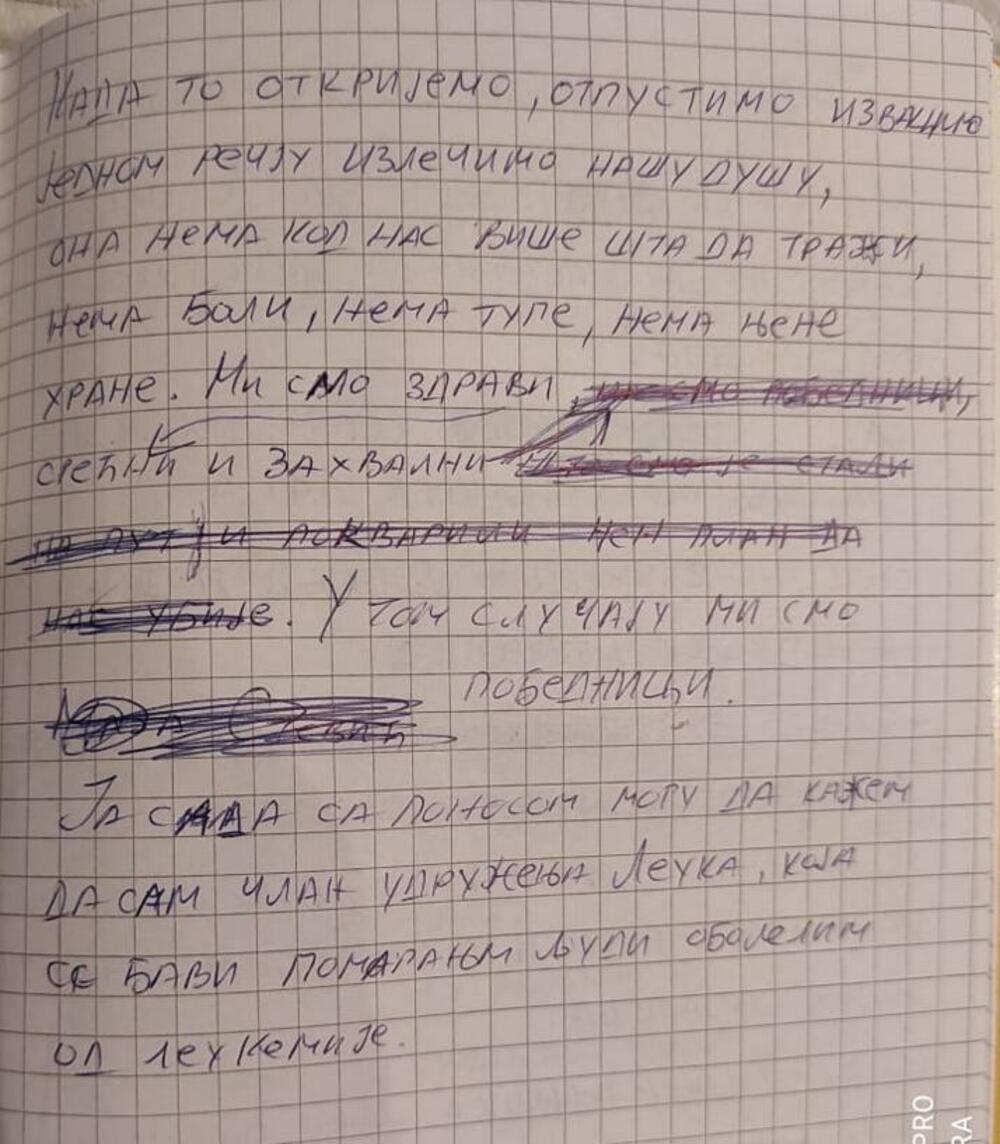 КАДА ТО ОТКРИЈЕМО, ОТПУСТИМО ИЗБАЦИМО
ЈЕДНОМ РЕЧЈУ ИЗЛЕЧИМО НАШУ ДУШУ,
ОНА НЕМА КОД НАС ВИШЕ ШТА ДА ТРАЖИ,
НЕМА БОЛИ, НЕМА ТУГЕ, НЕМА ЊЕНЕ
ХРАНЕ. МИ СМО ЗДРАВИ, СМО ПОБЕДНИЦИ,
СРЕЋНИ И ЗАХВАЛНИ ШТО СМО ЈЕ СТАЛИ
НА ПУТ И ПОКВАРИЛИ ЊЕН ПЛАН ДА
НАС УБИЈЕ. У ТОМ СЛУЧАЈУ МИ СМО
ПОБЕДНИЦИ.
ЈА САДА СА ПОНОСОМ МОГУ ДА КАЖЕМ
ДА САМ ЧЛАН УДРУЖЕЊА ЛЕУКА, КОЈА
СЕ БАВИ ПОМАГАЊМ ЉУДИ ОБОЛЕЛИМ
ОД ЛЕУКЕМИЈЕ.
PRO
RA